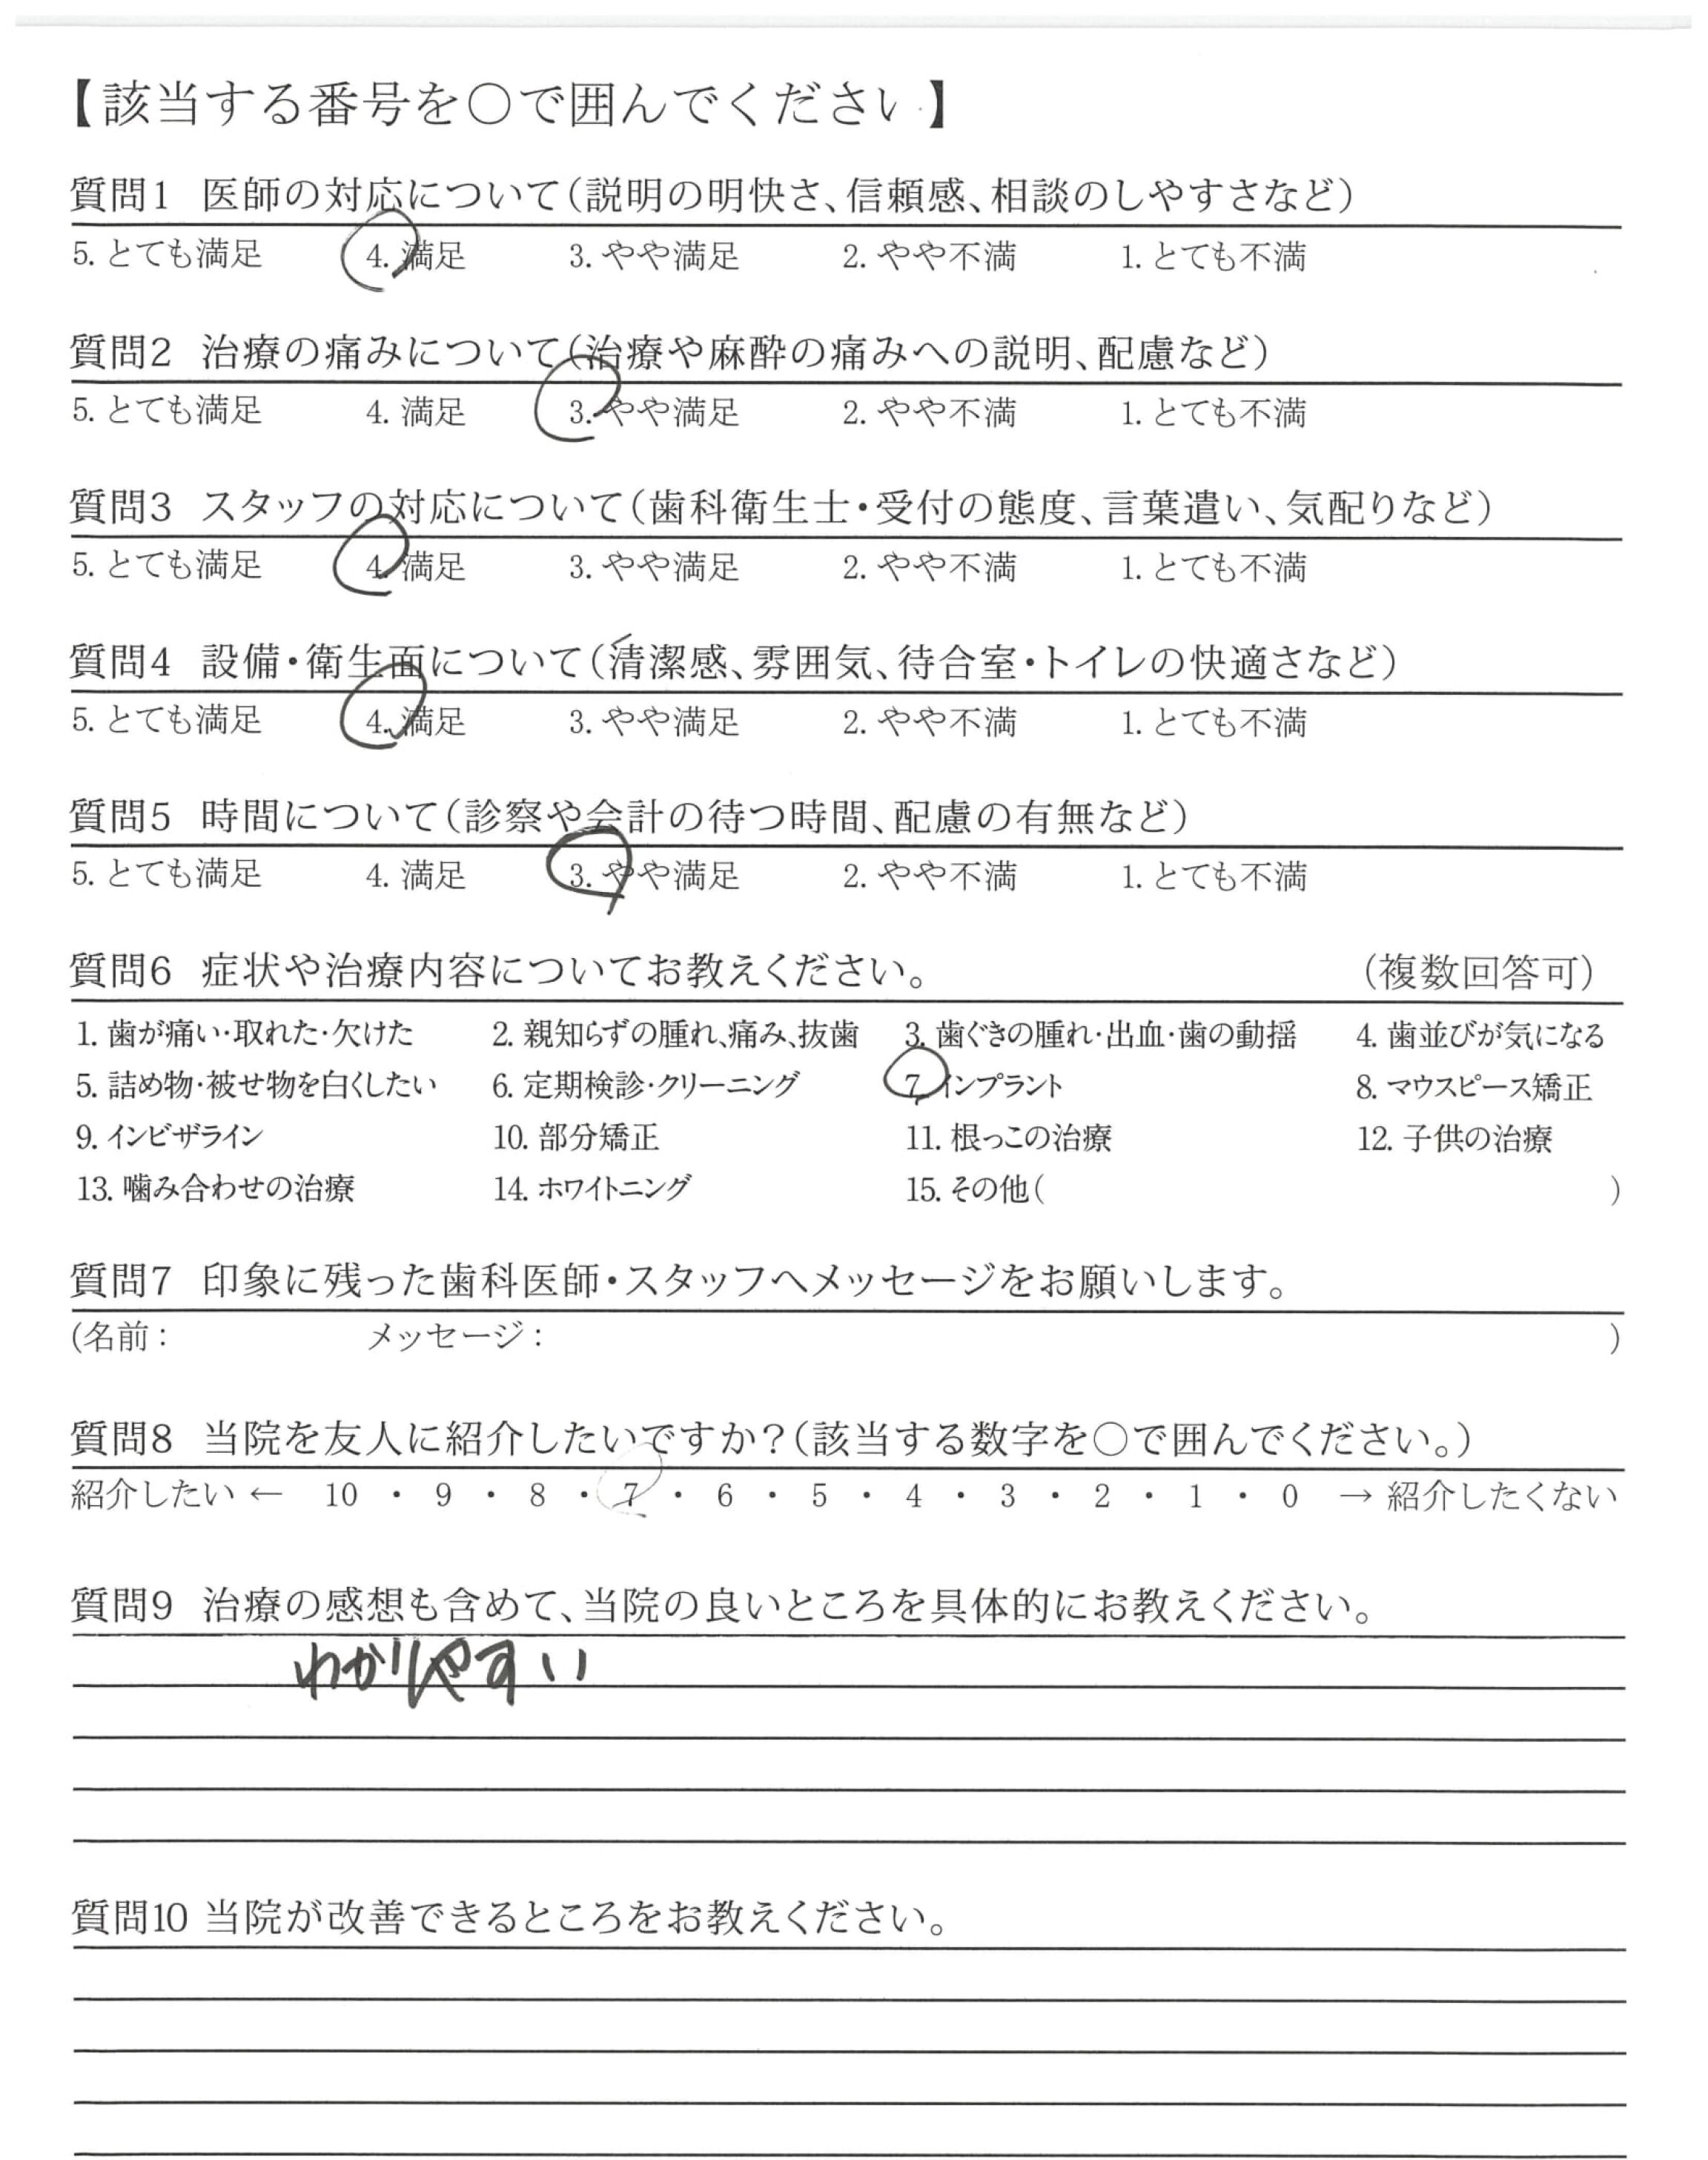 【該当する番号を○で囲んでください】
質問1 医師の対応について(説明の明快さ、信頼感、相談のしやすさなど)
5. とても満足 4. 満足 3. やや満足 2. やや不満 1. とても不満
質問2 治療の痛みについて(治療や麻酔の痛みへの説明、配慮など)
5. とても満足 4. 満足 3. やや満足 2. やや不満 1. とても不満
質問3 スタッフの対応について(歯科衛生士・受付の態度、言葉遣い、気配りなど)
5. とても満足 4. 満足 3. やや満足 2. やや不満 1. とても不満
質問4 設備・衛生面について(清潔感、雰囲気、待合室・トイレの快適さなど)
5. とても満足 4. 満足 3. やや満足 2. やや不満 1. とても不満
質問5 時間について(診察や会計の待つ時間、配慮の有無など)
5. とても満足 4. 満足 3. やや満足 2. やや不満 1. とても不満
質問6 症状や治療内容についてお教えください。 (複数回答可)
1. 歯が痛い・取れた・欠けた 2. 親知らずの腫れ、痛み、抜歯 3. 歯ぐきの腫れ・出血・歯の動揺 4. 歯並びが気になる
5. 詰め物・被せ物を白くしたい 6. 定期検診・クリーニング 7. インプラント 8. マウスピース矯正
9. インビザライン 10. 部分矯正 11. 根っこの治療 12. 子供の治療
13. 噛み合わせの治療 14. ホワイトニング 15. その他( )
質問7 印象に残った歯科医師・スタッフへメッセージをお願いします。
(名前: メッセージ: )
質問8 当院を友人に紹介したいですか?(該当する数字を○で囲んでください。)
紹介したい ← 10 ・ 9 ・ 8 ・ 7 ・ 6 ・ 5 ・ 4 ・ 3 ・ 2 ・ 1 ・ 0 → 紹介したくない
質問9 治療の感想も含めて、当院の良いところを具体的にお教えください。
わかりやすい
質問10 当院が改善できるところをお教えください。